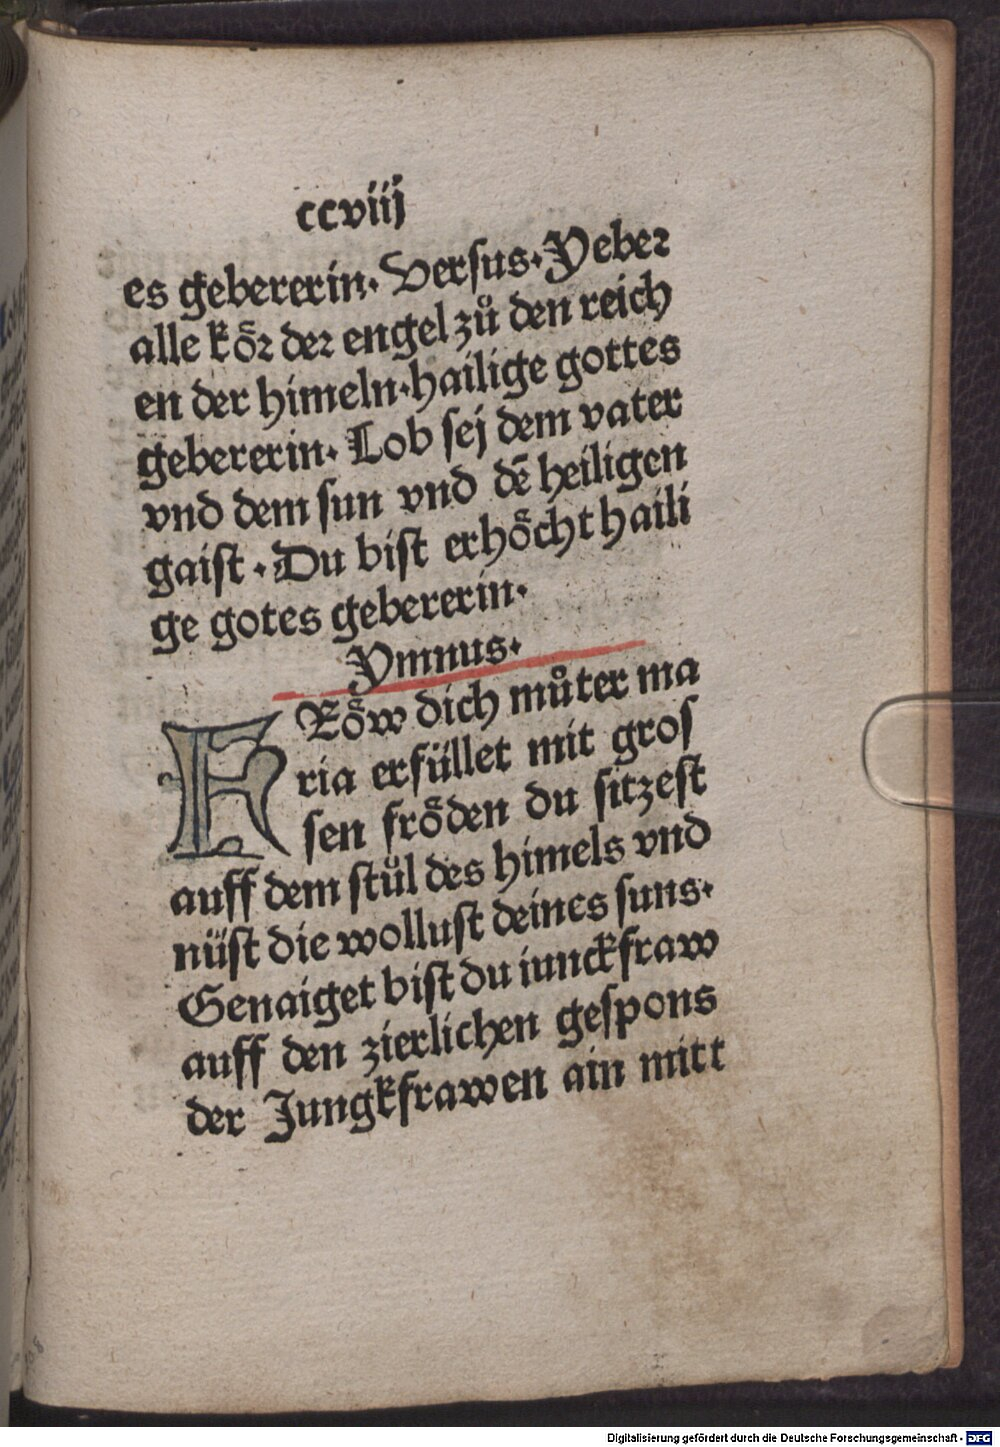 ccviij
es gebererin· Versus·Yeber
alle koͤr der engel zuͦ den reich
en der himeln·hailige gottes
gebererin· Lob sej dem vater
vnd dem sun vnd dē heiligen
gaist·Du bist erhoͤcht haili
ge gotes gebererin·
Ymnus·
FRoͤw dich muͦter ma
ria erfüllet mit gros
sen froͤden du sitzest
auff dem stuͦl des himels vnd
nüst die wollust deines suns·
Genaiget bist du iunckfraw
auff den zierlichen gespons
der Jungkfrawen ain mitt
Digitalisierung gefördert durch die Deutsche Forschungsgemeinschaft - DFG